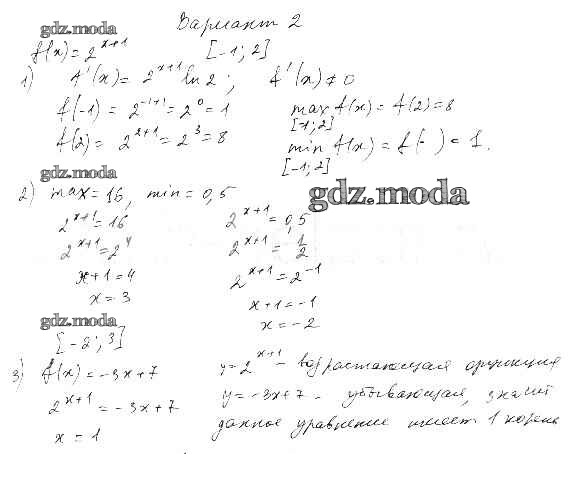 Вариант 2
gdz.moda
f(x) = 2^{x+1} [-1; 2]
1) f'(x) = 2^{x+1} ln 2; f'(x) ≠ 0
f(-1) = 2^{-1+1} = 2^0 = 1 max f(x) = f(2) = 8
[-1; 2]
f(2) = 2^{2+1} = 2^3 = 8 min f(x) = f(- ) = 1.
[-1; 2]
gdz.moda
2) max = 16, min = 0,5
gdz.moda
2^{x+1} = 16 2^{x+1} = 0,5
2^{x+1} = 2^4 2^{x+1} = 1/2
x+1 = 4 2^{x+1} = 2^{-1}
x = 3 x+1 = -1
x = -2
gdz.moda
[-2; 3]
3) f(x) = -3x+7 y = 2^{x+1} - возрастающая функция
2^{x+1} = -3x+7 y = -3x+7 - убывающая, значит
x = 1 данное уравнение имеет 1 корень